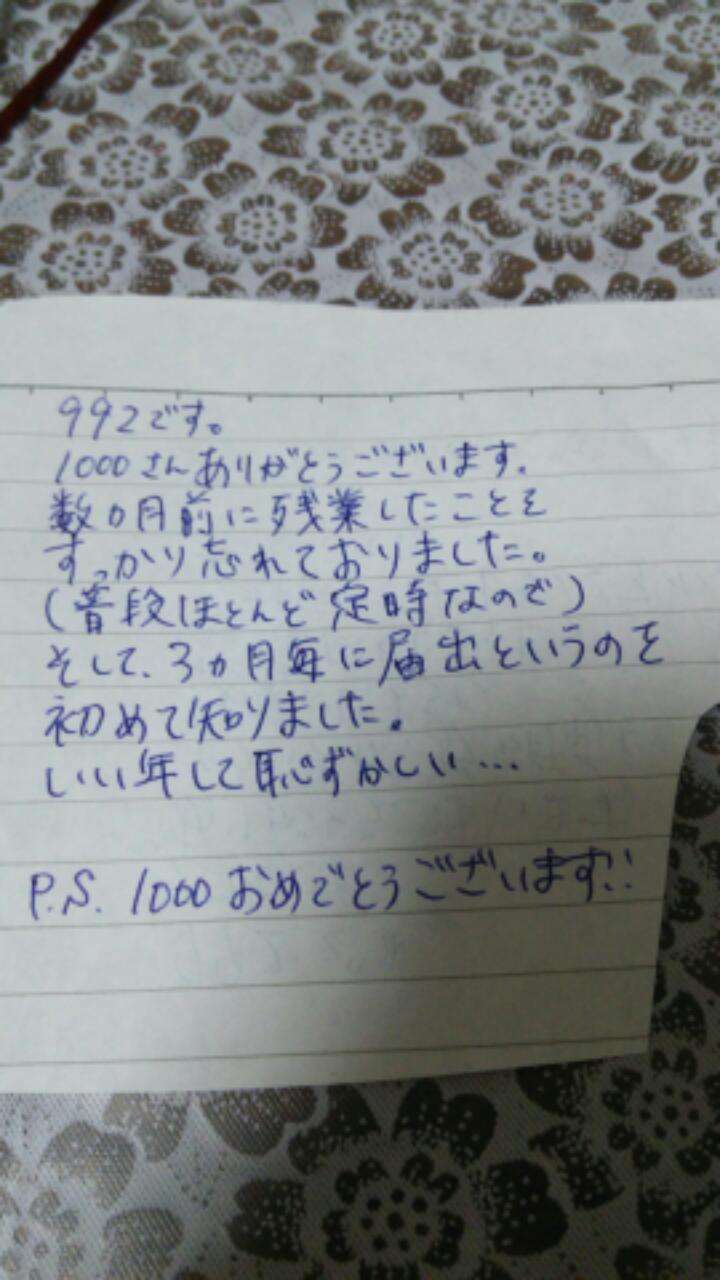 992です。
1000さんありがとうございます。
数ヵ月前に残業したことを
すっかり忘れておりました。
(普段ほとんど定時なので)
そして、3ヵ月毎に届出というのを
初めて知りました。
いい年して恥ずかしい…
P.S. 1000おめでとうございます!!